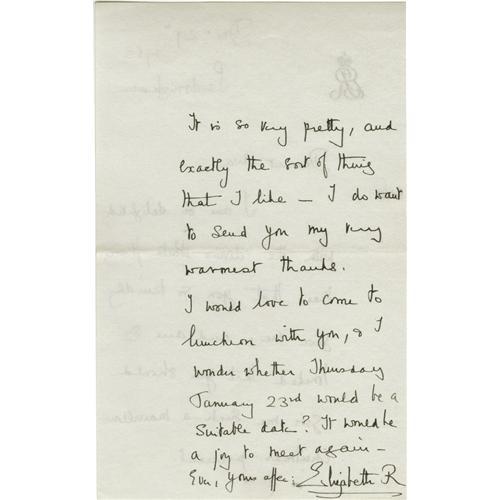 It is so very pretty, and
exactly the sort of thing
that I like — I do want
to send you my very
warmest thanks.
I would love to come to
luncheon with you, & I
wonder whether Thursday
January 23rd would be a
suitable date? It would be
a joy to meet again —
Ever, yours affec: Elizabeth R